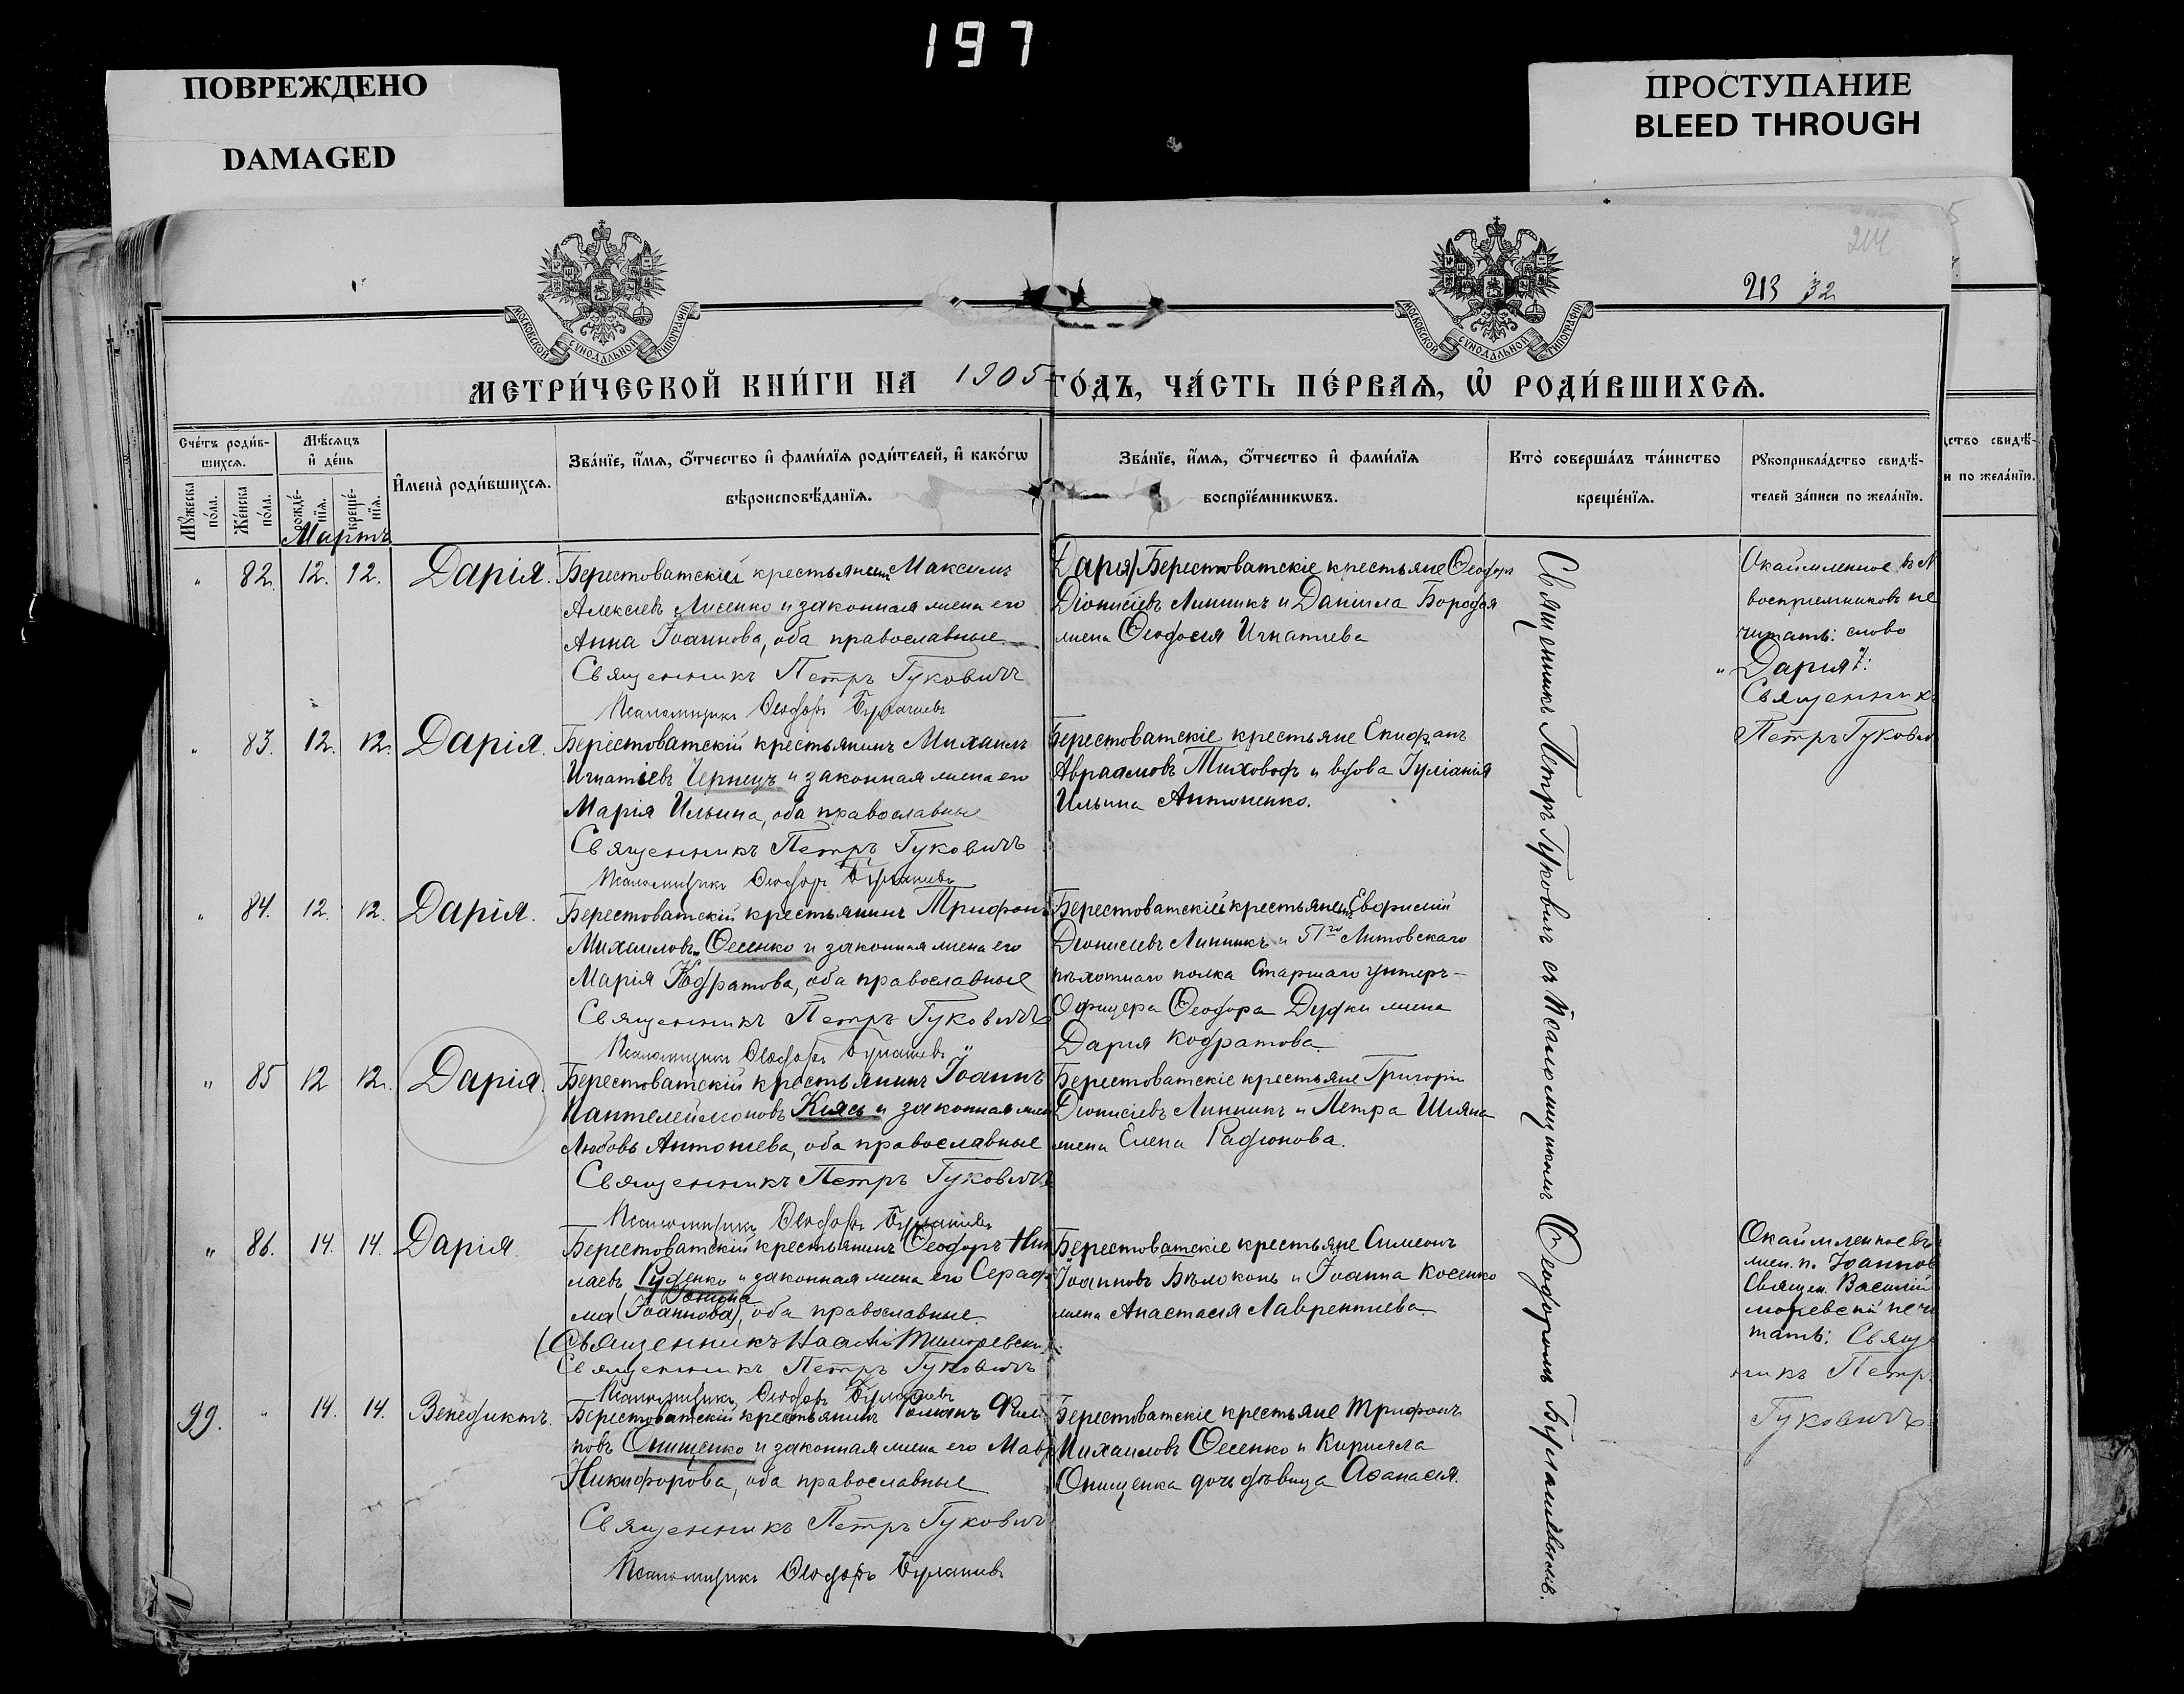 197
ПОВРЕЖДЕНО
DAMAGED
ПРОСТУПАНИЕ
BLEED THROUGH
214
213 32
МОСКОВСКОЙ СУНОДАЛЬНОЙ ТИПОГРАФІИ
МОСКОВСКОЙ СУНОДАЛЬНОЙ ТИПОГРАФІИ
МЕТРИ́ЧЕСКОЙ КНИ́ГИ НА 1905 ГО́ДЪ, ЧА́СТЬ ПЕ́РВАЯ, Ѡ҆ РОДИ́ВШИХСЯ.
Сче́тъ роди́вшихся.
Мꙋ́жеска по́ла.
Же́нска по́ла.
Мѣ́сяцъ и҆ де́нь
рожде́нїя.
креще́нїя.
И҆мена̀ роди́вшихся.
Зва́нїе, и҆́мя, ѻ҆́тчество и҆ фами́лїя роди́телей, и҆ како́гѡ вѣроисповѣ́данїя.
Зва́нїе, и҆́мя, ѻ҆́тчество и҆ фами́лїя воспрїе́мникѡвъ.
Кто̀ соверша́лъ та́инство креще́нїя.
Рꙋкоприкла́дство свидѣ́телей за́писи по жела́нїю.
Мартъ
" 82. 12. 12. Дарія.
Берестоватскій крестьянинъ Максимъ
Алексіевъ Лисенко и законная жена его
Анна Іоаннова, оба православные
Священникъ Петръ Гуковичъ
Псаломщикъ Ѳеодоръ
Дарія) Берестоватскіе крестьяне Ѳеодоръ
Діонисіевъ Линникъ и Даніила Бородая
жена Ѳеодосія Игнатіева
Окаймленное въ №
воспріемниковъ не
читать: слово
"Дарія":
Священникъ
Петръ Гукови
" 83. 12. 12. Дарія.
Берестоватскій крестьянинъ Михаилъ
Игнатіевъ Чернецъ и законная жена его
Марія Ильина, оба православные
Священникъ Петръ Гуковичъ
Псаломщикъ Ѳеодоръ
Берестоватскіе крестьяне Епифанъ
Авраамовъ Тиховодъ и вдова Іуліанія
Ильина Антоненко.
" 84. 12. 12. Дарія.
Берестоватскій крестьянинъ Трифонъ
Михаиловъ Ѳесенко и законная жена его
Марія Кодратова, оба православные
Священникъ Петръ Гуковичъ
Псаломщикъ Ѳеодоръ
Берестоватскій крестьянинъ Евфимій
Діонисіевъ Линникъ и 51го Литовскаго
пѣхотнаго полка Старшаго унтеръ-
Офицера Ѳеодора Дудки жена
Дарія Кодратова.
" 85 12 12. Дарія.
Берестоватскій крестьянинъ Іоаннъ
Пантелеймоновъ Киясь и законная жен
Любовь Антоніева, оба православные
Священникъ Петръ Гуковичъ
Псаломщикъ Ѳеодоръ
Берестоватскіе крестьяне Григорій
Діонисіевъ Линникъ и Петра Шіяна
жена Елена Радіонова.
" 86. 14. 14. Дарія.
Берестоватскій крестьянинъ Ѳеодоръ Ник
лаевъ Руденко и законная жена его Сераф
ма (Іоаннова), оба православные
(Священникъ
Священникъ Петръ Гуковичъ
Псаломщикъ Ѳеодоръ
Берестоватскіе крестьяне Симеонъ
Іоанновъ Бѣлоконь и Іоанна Косенко
жена Анастасія Лаврентіева.
Окаймленное въ
Іоаннов
Священ. Василій
не чи
тать: Свящ
никъ Петръ
Гуковичъ
99. " 14. 14. Венедиктъ.
Берестоватскій крестьянинъ Романъ Фили
повъ Онищенко и законная жена его Мавр
Никифорова, оба православные
Священникъ Петръ Гуковичъ
Псаломщикъ Ѳеодоръ
Берестоватскіе крестьяне Трифонъ
Михаиловъ Ѳесенко и Кирилла
Онищенка дочь дѣвица Аѳанасія.
Священникъ Петръ Гуковичъ съ Псаломщикомъ Ѳеодоромъ